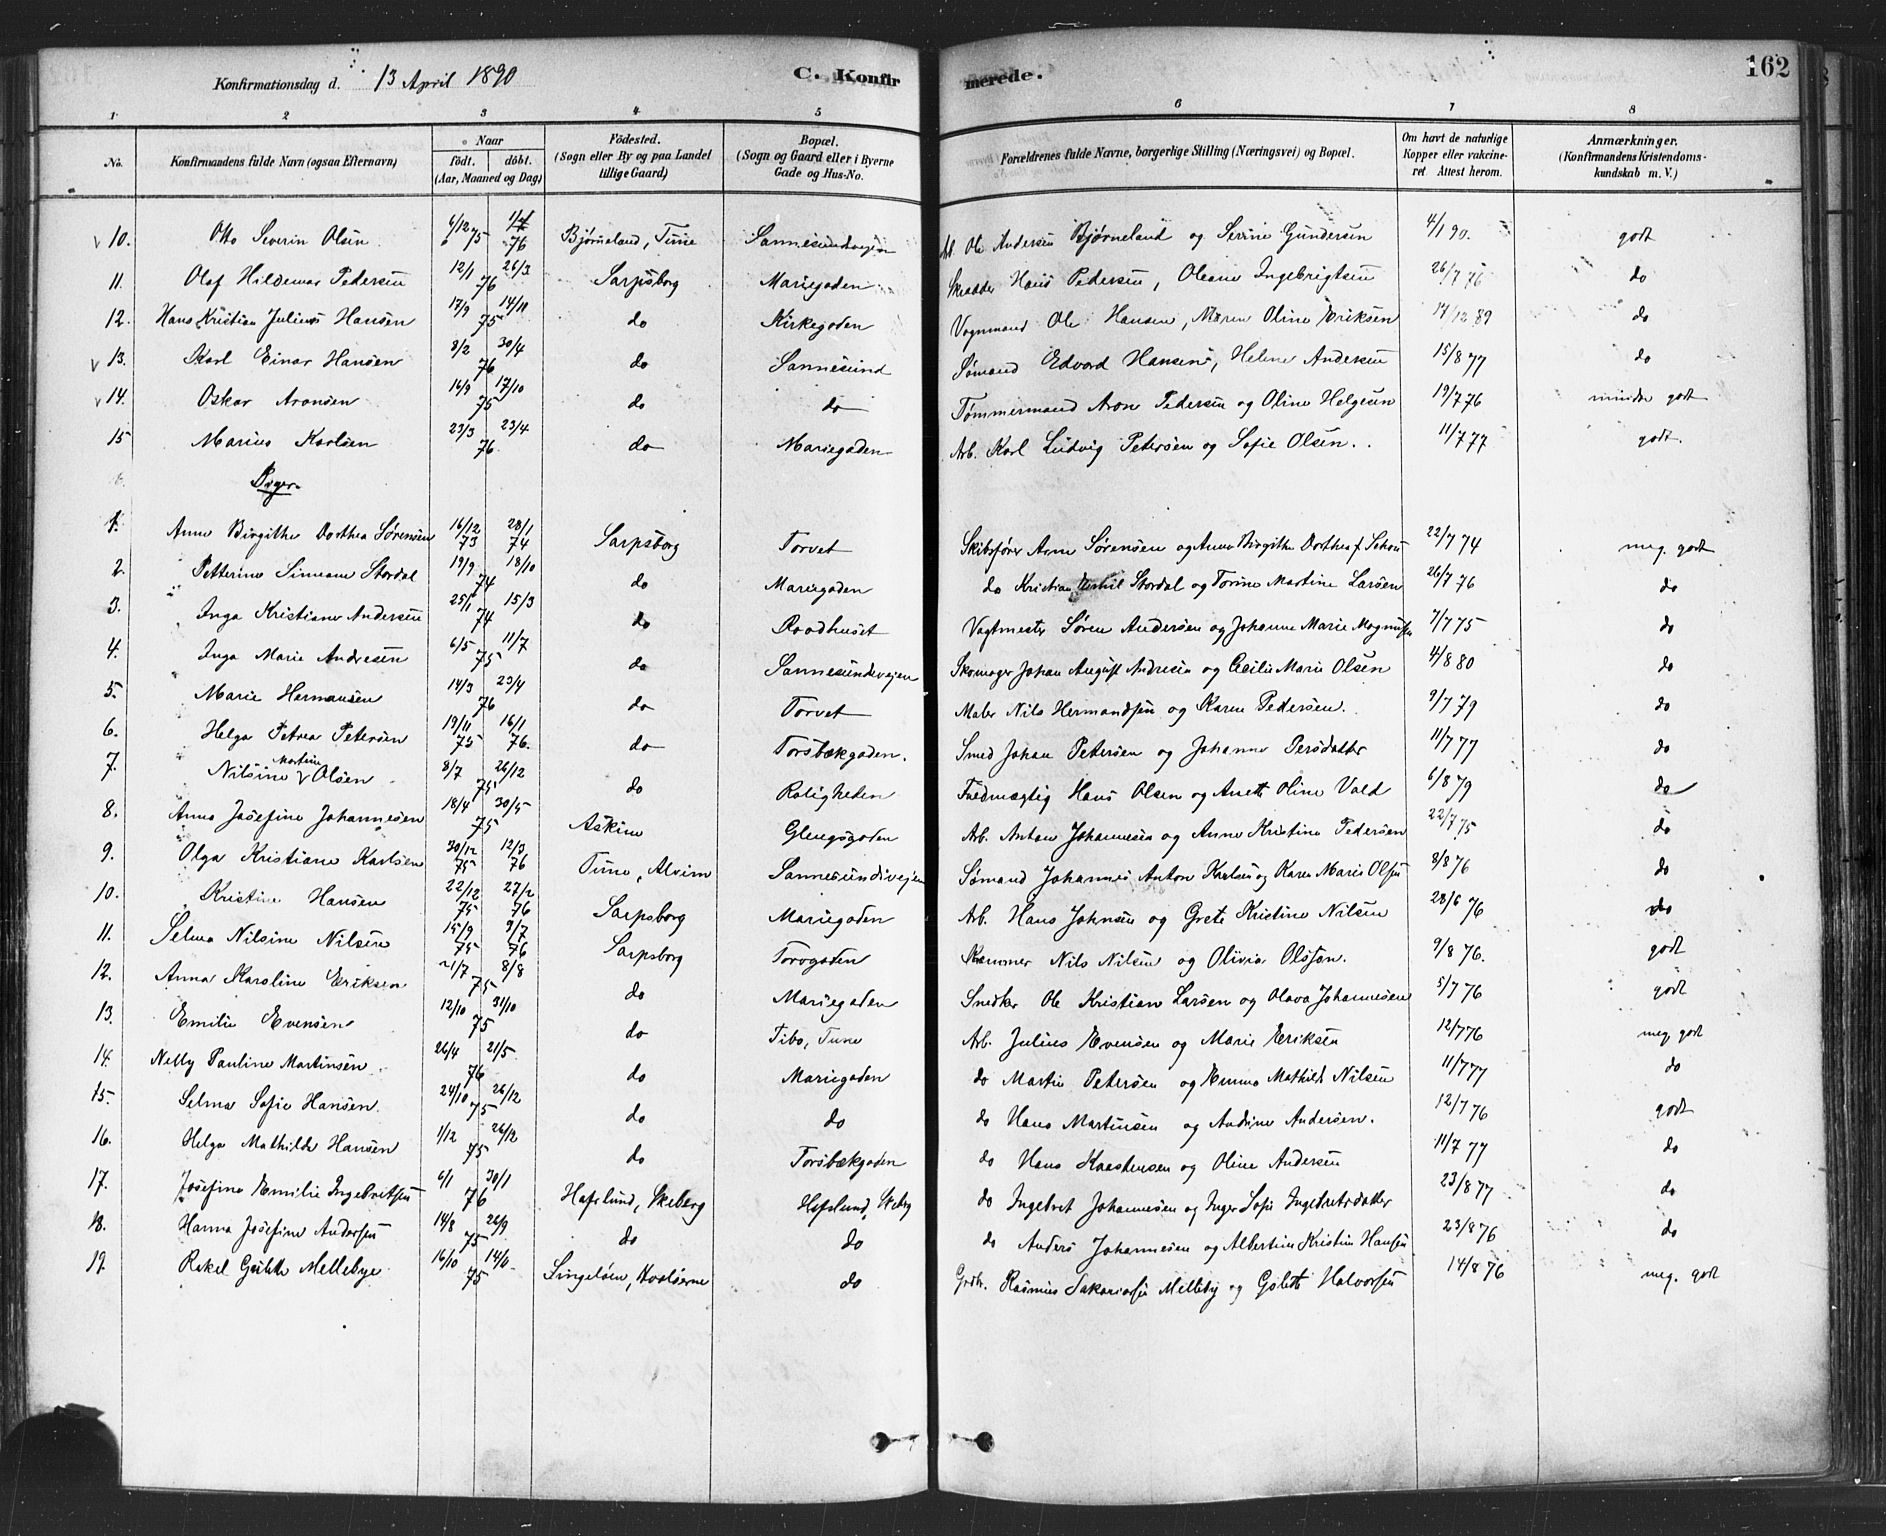 Konfirmationsdag d. 13 April 1890 C. Konfir merede. 162
1 2 3 4 5 6 7 8
No. Konfirmandens fulde Navn (ogsaa Efternavn) Naar födt. döbt. (Aar, Maaned og Dag) Födested. (Sogn eller By og paa Landet tillige Gaard) Bopæl. (Sogn og Gaard eller i Byerne Gade og Hus-No. Forældrenes fulde Navne, borgerlige Stilling (Næringsvei) og Bopæl. Om havt de naturlige Kopper eller vakcineret. Attest herom. Anmærkninger. (Konfirmandens Kristendomskundskab m. V.)
10. Otto Severin Olsen 6/12 75 76 Bjørneland, Tune Sannesundveien Arb. Ole Andersen Bjørneland og Serine Gundersen 4/1 90. godt
11. Olaf Hildemar Pedersen 12/1 26/3 76 Sarpsborg Mariegaden Skrædder Hans Pedersen, Oleane Ingebrigtsen 26/7 76 do
12. Hans Kristian Julius Hansen 17/9 14/11 75 do Kirkegaden Vognmand Ole Hansen, Maren Oline Eriksen 14/12 89 do
13. Karl Einar Hansen 8/2 30/4 76 do Sannesund Sømand Edvard Hansen, Helene Andersen 15/8 77 do
14. Oskar Aronsen 16/9 17/10 75 do do Tømmermand Aron Pedersen og Oline Helgesen 19/7 76 mindre godt
15 Marius Karlsen 23/3 23/4 76 do Mariegaden Arb. Karl Ludvig Petersen og Sofie Olsen. 11/7 77 godt.
Piger.
1. Anne Birgithe Dorthea Sørensen 16/12 73 28/1 74 Sarpsborg Torvet Skibsfører Arne Sørensen og Anne Birgithe Dorthea f. Schou 22/7 74 meg. godt
2. Petterine Simeane Stordal 19/9 18/10 74 do Mariegaden do Kristian Stordal og Torine Martine Larsen 26/7 76 do
3. Inga Kristiane Andersen 25/1 15/3 74 do Raadhuset Vagtmester Søren Andersen og Johanne Marie Magnusen 7/7 75 do
4. Inga Marie Andresen 6/5 11/7 75 do Sannesundveien Skomager Johan August Andresen og Cecilie Marie Olsen 4/8 80 do
5. Marie Hermansen 14/3 23/4 76 do Torvet Maler Nils Hermandsen og Karen Pedersen. 9/7 79 do
6. Helga Petrea Petersen 19/11 75 16/1 76. do Torsbækgaden. Smed Johan Petersen og Johanne Persdatter 11/7 77 do
7. Nilsine Martine Olsen 8/7 26/12 75 do Roligheden Fuldmægtig Hans Olsen og Anette Oline Vold 6/8 79 do
8. Anna Josefine Johannesen 18/4 30/5 75 Askim Glengsgaden Arb. Anton Johannesen og Anne Kristine Pedersen 22/7 75 do
9. Olga Kristiane Karlsen 30/12 75 12/3 76 Tune, Alvim Sannesundsveien Sømand Johannes Anton Karlsen og Karen Marie Olsen 8/8 76 do
10. Kristine Hansen 22/12 75 27/2 76 Sarpsborg Mariegaden Arb. Hans Johnsen og Grete Kristine Nilsen 28/6 76 do
11. Selma Nilsine Nilsen 15/9 75 9/7 76 Sarpsborg Torvgaden Kæmner Nils Nilsen og Olivia Olsson. 9/8 76. godt
12. Anna Karoline Eriksen 1/7 8/8 75 do Mariegaden Snedker Ole Kristian Larsen og Olava Johannesen 5/7 76 godt
13. Emilie Evensen 12/10 31/10 75 do Tibo, Tune Arb. Julius Evensen og Marie Eriksen 12/7 76 meg. godt
14. Nelly Pauline Martinsen 26/4 21/5 76 do Mariegaden do Martin Petersen og Emma Mathilde Nilsen 11/7 77 do
15. Selma Sofie Hansen 24/10 26/12 75 do do do Hans Martinsen og Andine Andersen. 12/7 76 godt
16. Helga Mathilde Hansen 1/12 26/12 75 do Torsbækgaden do Hans Karstensen og Oline Andersen 11/7 77 do
17. Josefine Emilie Ingebretsen 6/1 30/1 76 Hafslund, Skeberg Hafslund, Skeberg do Ingebret Johannesen og Inger Sofie Ingebretsdatter 23/8 77 do
18. Hanna Josefine Andersen 14/8 26/9 75 do do do Anders Johannesen og Albertine Kristine Hansen 23/8 76 do
19. Rakel Gulette Mellebye 16/10 75 Singeløen, Hvaløerne do Grdbr. Rasmus Sakariasen Melleby og Gulette Halvorsen 14/8 76 meg. godt